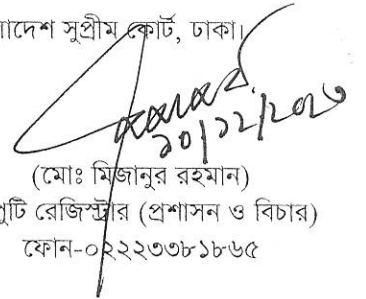 াদেশ সুপ্রীম কোর্ট, ঢাকা।
(মোঃ মিজানুর রহমান)
পুটি রেজিস্ট্রার (প্রশাসন ও বিচার)
ফোন-০২২২৩৩৮১৮৬৫